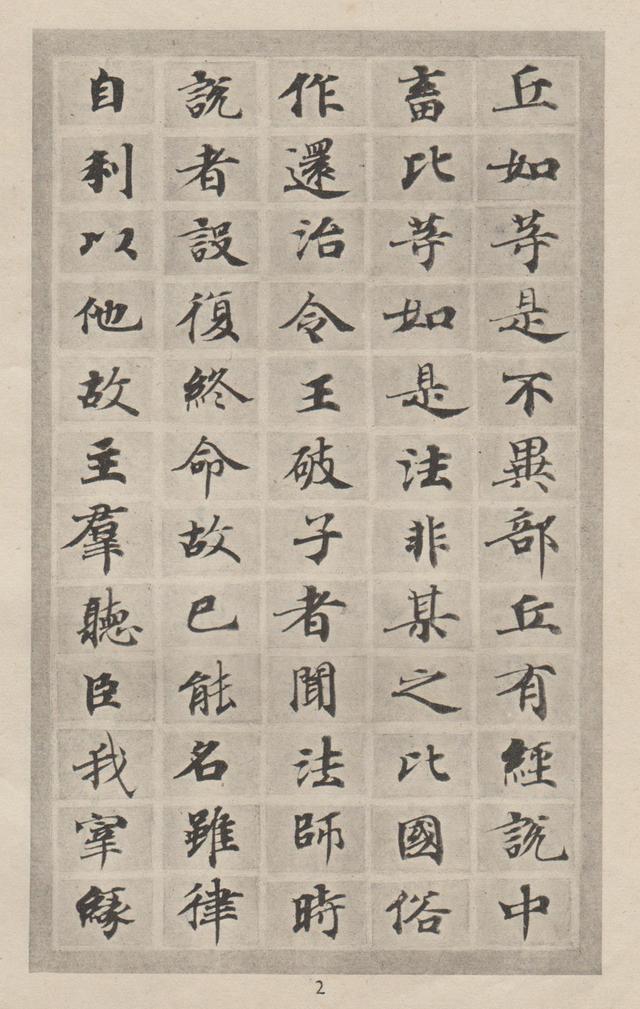 丘如等是不異部丘有經說中
畜比等如是法非某之比國俗
作還治令王破子者聞法師時
說者設復終命故已能名雖律
自利以他故主羣聽臣我寧緣
2